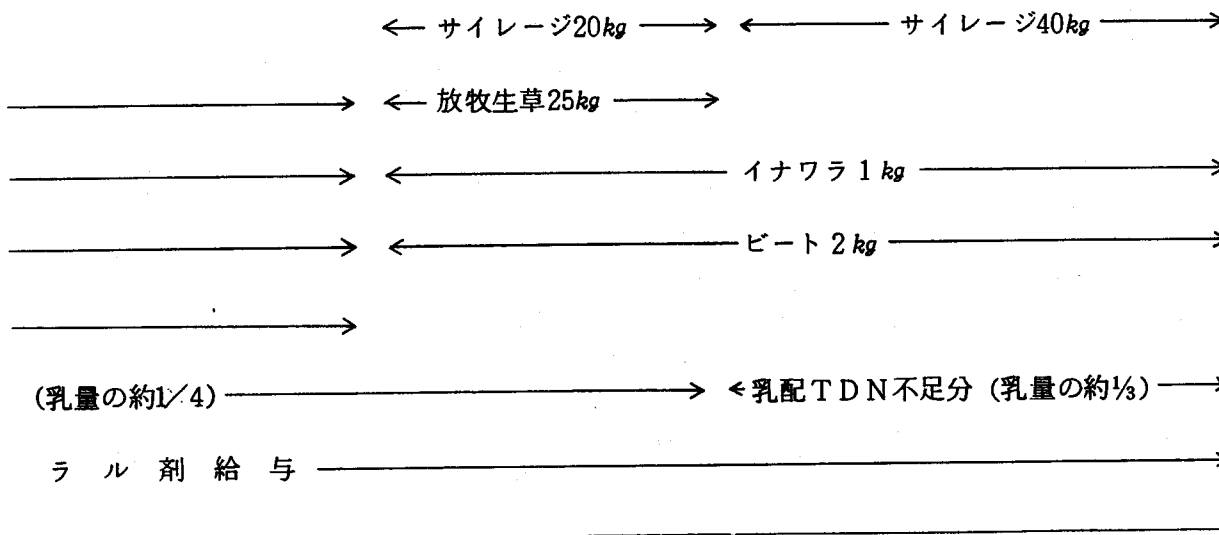 サイレージ20kg サイレージ40kg
放牧生草25kg
イナワラ1kg
ビート2kg
(乳量の約1/4) 乳配TDN不足分(乳量の約⅓)
ラル剤給与